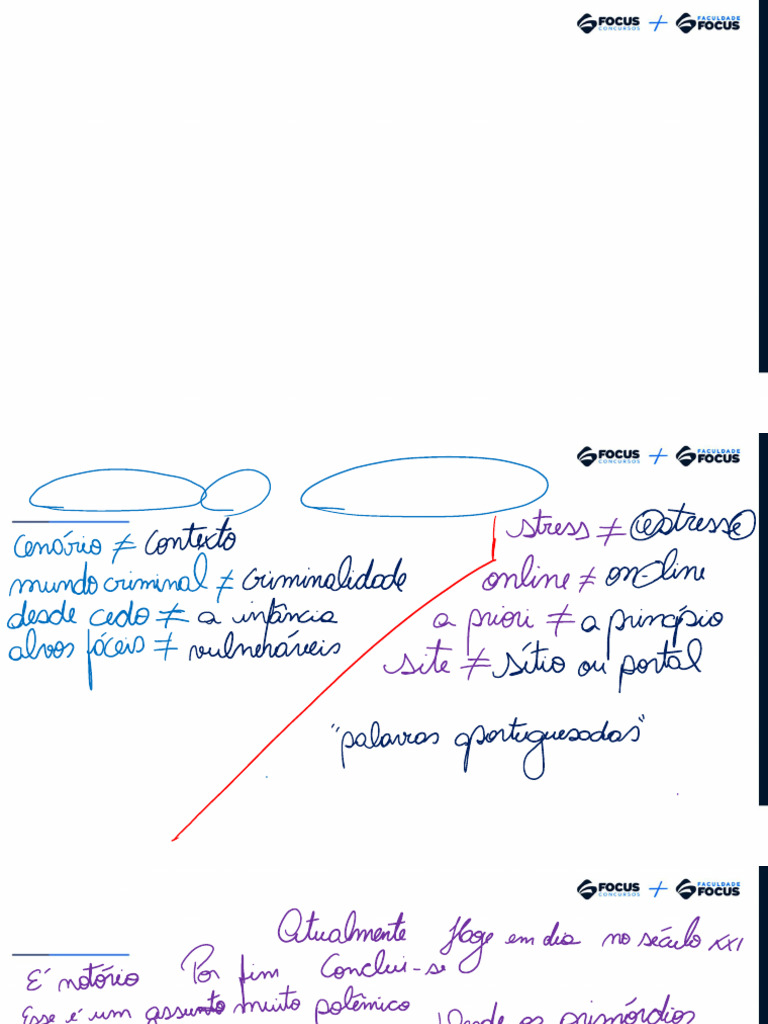 FOCUS CONCURSOS + FACULDADE FOCUS
FOCUS CONCURSOS + FACULDADE FOCUS
cenário ≠ contexto
mundo criminal ≠ criminalidade
desde cedo ≠ a infância
alvos fáceis ≠ vulneráveis
stress ≠ estresse
online ≠ on-line
a priori ≠ a princípio
site ≠ sítio ou portal
"palavras aportuguesadas"
FOCUS CONCURSOS + FACULDADE FOCUS
Atualmente Hoje em dia no século XXI
É notório Por fim Conclui-se
Esse é um assunto muito polêmico Desde os primórdios